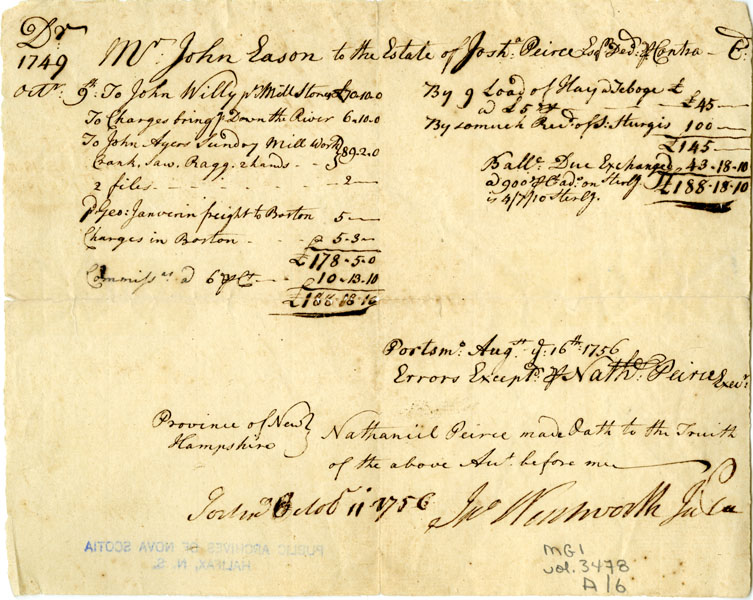 Dr
1749
Mr. John Eason to the Estate of Josha. Peirce Esqr. Decd. Contra Cr.
Octr. 9th. To John Willy pr Mill Stones £70.10.0
To Charges bringg. Down the River 6.10.0
To John Ayers Sunday Mill Work
Crank, Saw, Ragg. 2 hands } 89.2.0
2 files 2
pd Geo: Janverin freight to Boston 5
Charges in Boston 5.3
£178.5.0
Commisss. a 6 pr Ct. 10.13.10
£188.18.10
By 9 Load of Hay a Teboge £
a £5 pr £45
By somuch Recd. of S. Sturgis 100
£145
Ballce. Due Exchanged 43.18.10
a 900 pr Ct ad. on Sterlg. £188.18.10
is 4/7/10 Sterlg.
Portsmo. Augst. ye. 16th. 1756
Errors Exceptd. pr Nathl. Peirce Execr.
Province of New
Hampshire } Nathaniel Peirce made Oath to the Truith
of the above Acct. before me
Portsmo. Octobr. 11 1756 Jno Wentworth Jus Pea
PUBLIC ARCHIVES OF NOVA SCOTIA
HALIFAX, N. S.
MG1
vol. 3478
A/6